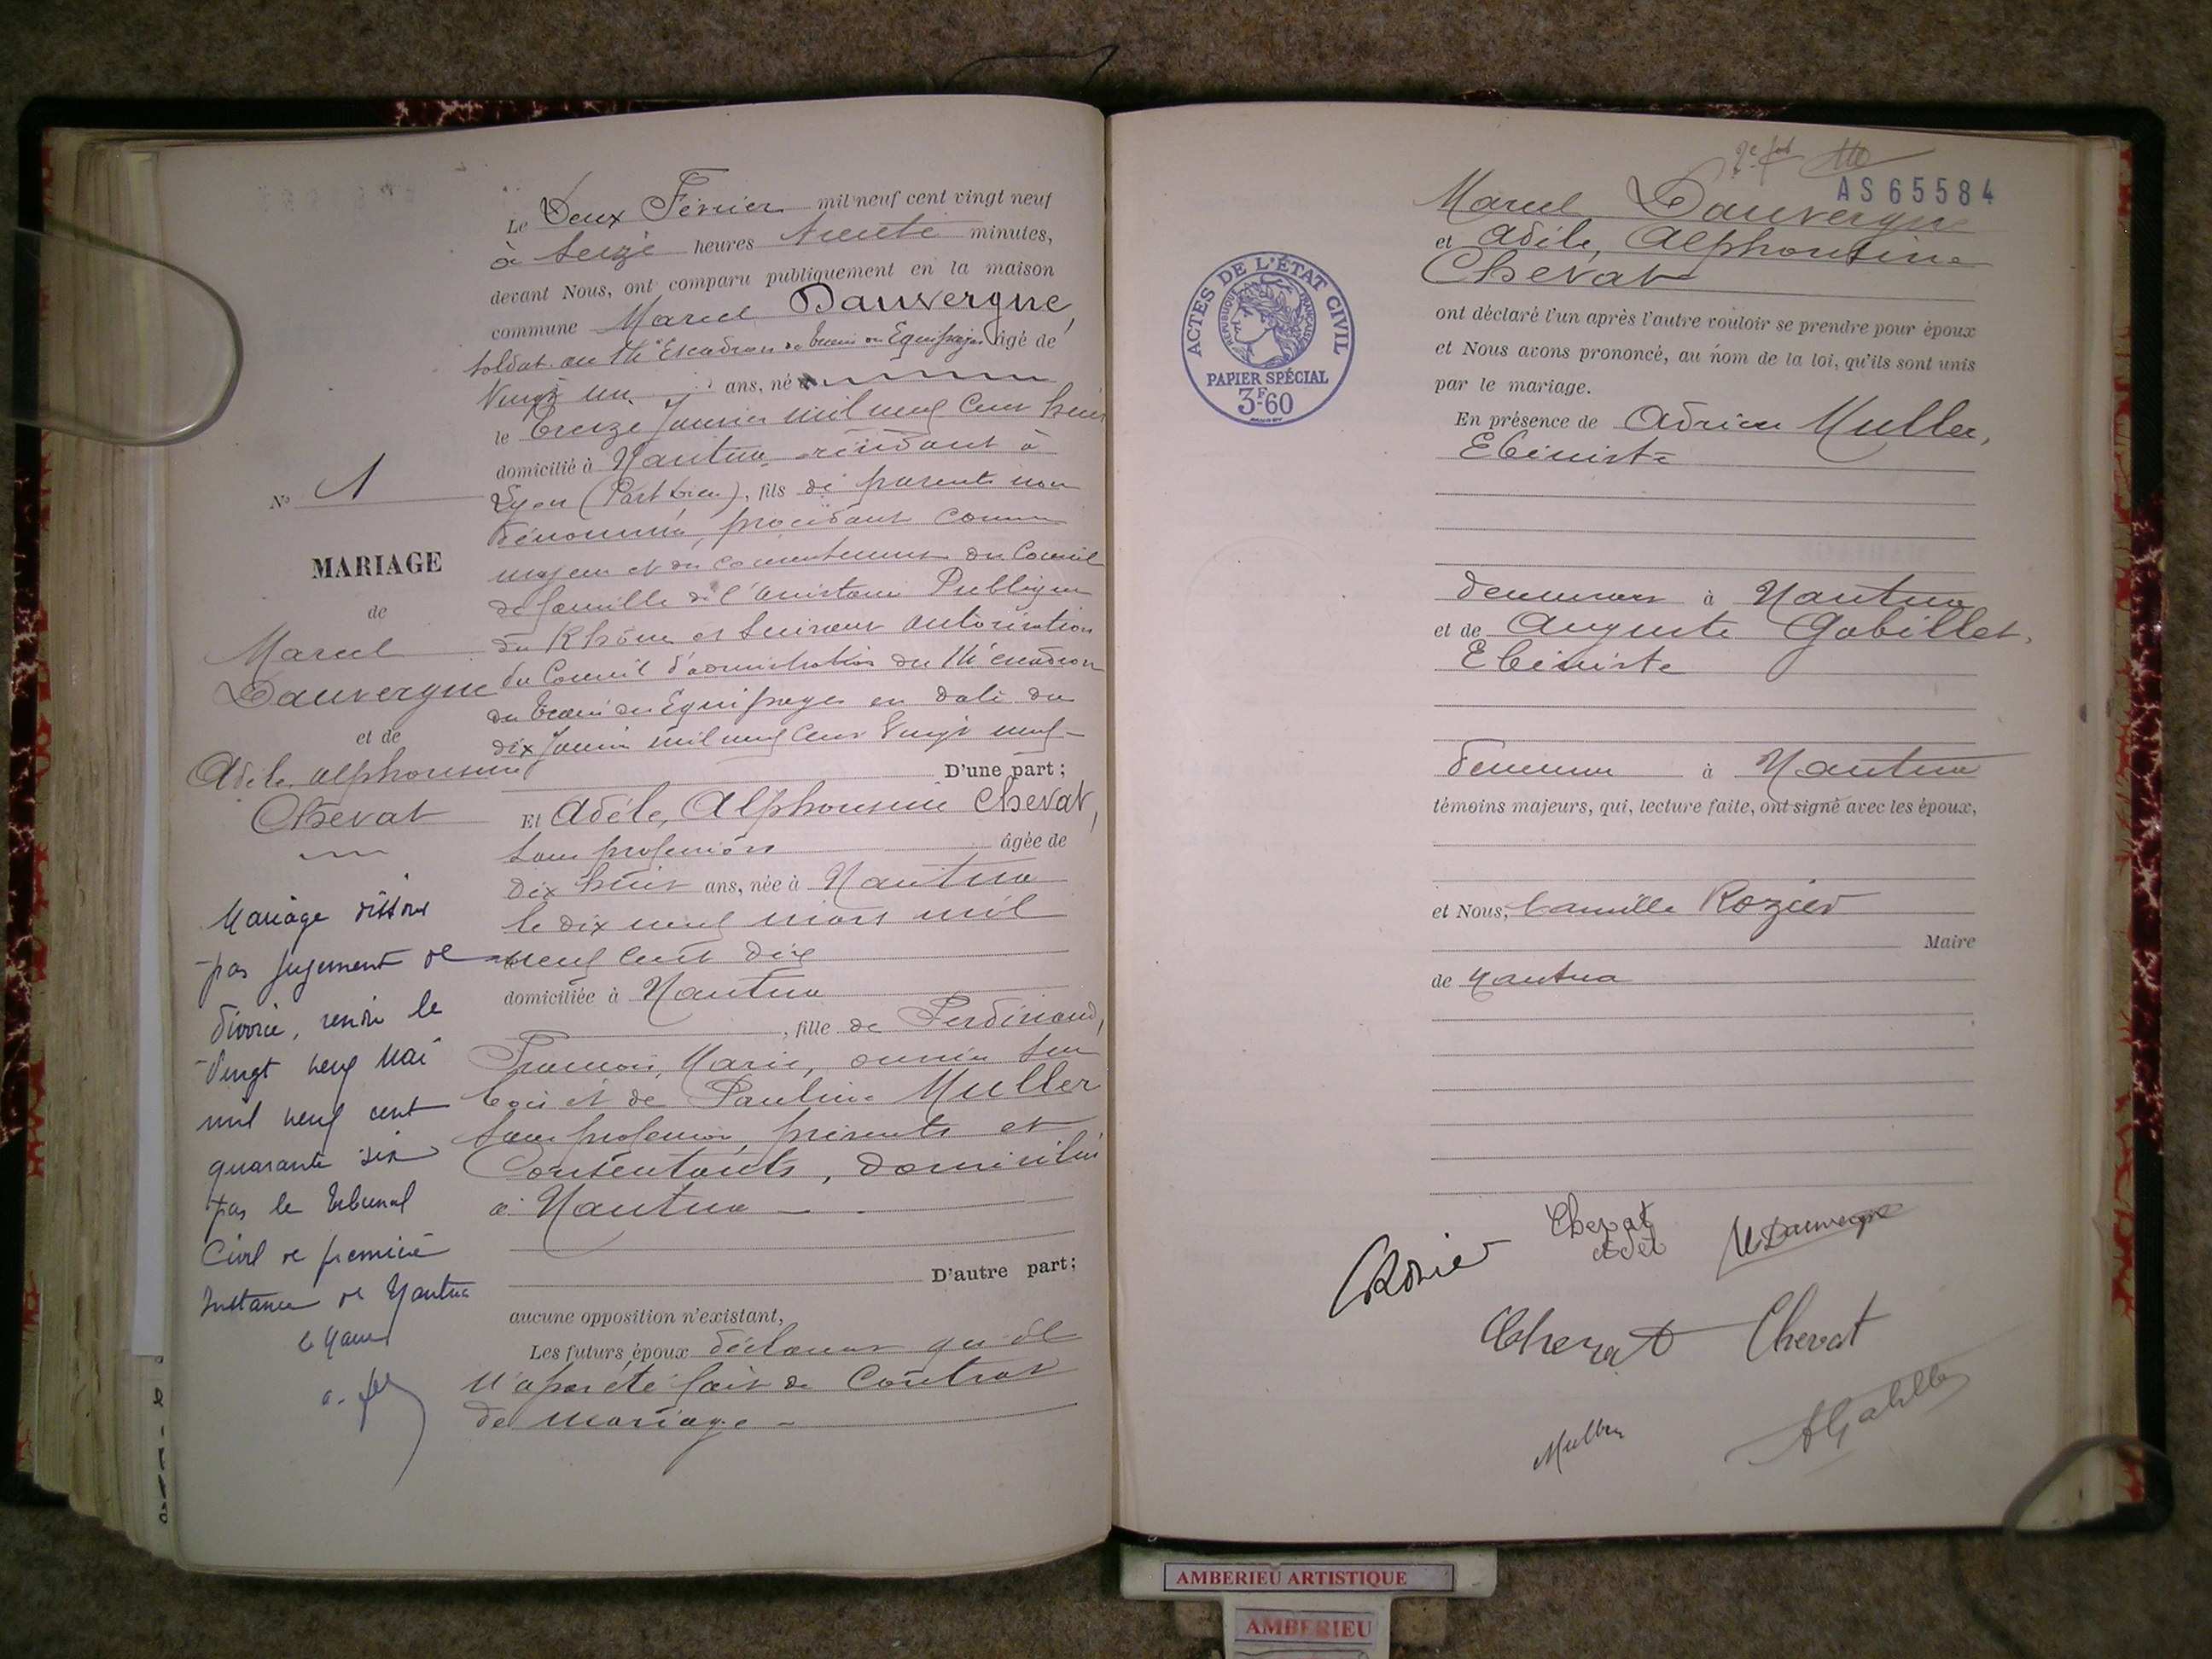 Le Deux Février mil neuf cent vingt neuf
à seize heures trente minutes,
devant Nous, ont comparu publiquement en la maison
commune Marcel Dauvergne,
soldat au 14e Escadron du train des Equipages âgé de
Vingt un ans, né
le Treize Janvier mil neuf cent huit
domicilié à Nantua, résidant à
Lyon (Part Dieu), fils de parents non
dénommés, procédant comme
majeur et du consentement du Conseil
de famille de l'Assistance Publique
du Rhône et suivant autorisation
du Conseil d'administration du 14e escadron
du train des Equipages en date du
dix Janvier mil neuf cent vingt neuf -
D'une part;
Et Adèle, Alphonsine Chevat,
sans profession âgée de
dix huit ans, née à Nantua
le dix neuf mars mil
neuf cent dix
domiciliée à Nantua
, fille de Ferdinand,
François, Marie, ouvrier sur
bois et de Pauline Muller
sans profession, présents et
Consentants, domiciliés
à Nantua
D'autre part;
aucune opposition n'existant,
Les futurs époux déclarent qu'il
n'a pas été fait de Contrat
de mariage -
No 1
MARIAGE
de
Marcel
Dauvergne
et de
Adèle, alphonsine
Chevat
Mariage dissous
par jugement de
divorce, rendu le
Vingt neuf Mai
mil neuf cent
quarante six
par le Tribunal
Civil de première
Instance de Nantua
le Maire
AS65584
Marcel Dauvergne
et Adèle, Alphonsine
Chevat
ont déclaré l'un après l'autre vouloir se prendre pour époux
et Nous avons prononcé, au nom de la loi, qu'ils sont unis
par le mariage.
En présence de Adrien Muller,
Ebéniste
demeurant à Nantua
et de Auguste Gobillet,
Ebéniste
demeurant à Nantua
témoins majeurs, qui, lecture faite, ont signé avec les époux,
et Nous, Camille Rozier
Maire
de Nantua
ACTES DE L'ÉTAT CIVIL
RÉPUBLIQUE FRANÇAISE
PAPIER SPÉCIAL
3F60
CRozier
Chevat
Adèl
M Dauvergne
Chevat
Chevat
Muller
AMBERIEU ARTISTIQUE
AMBERIEU